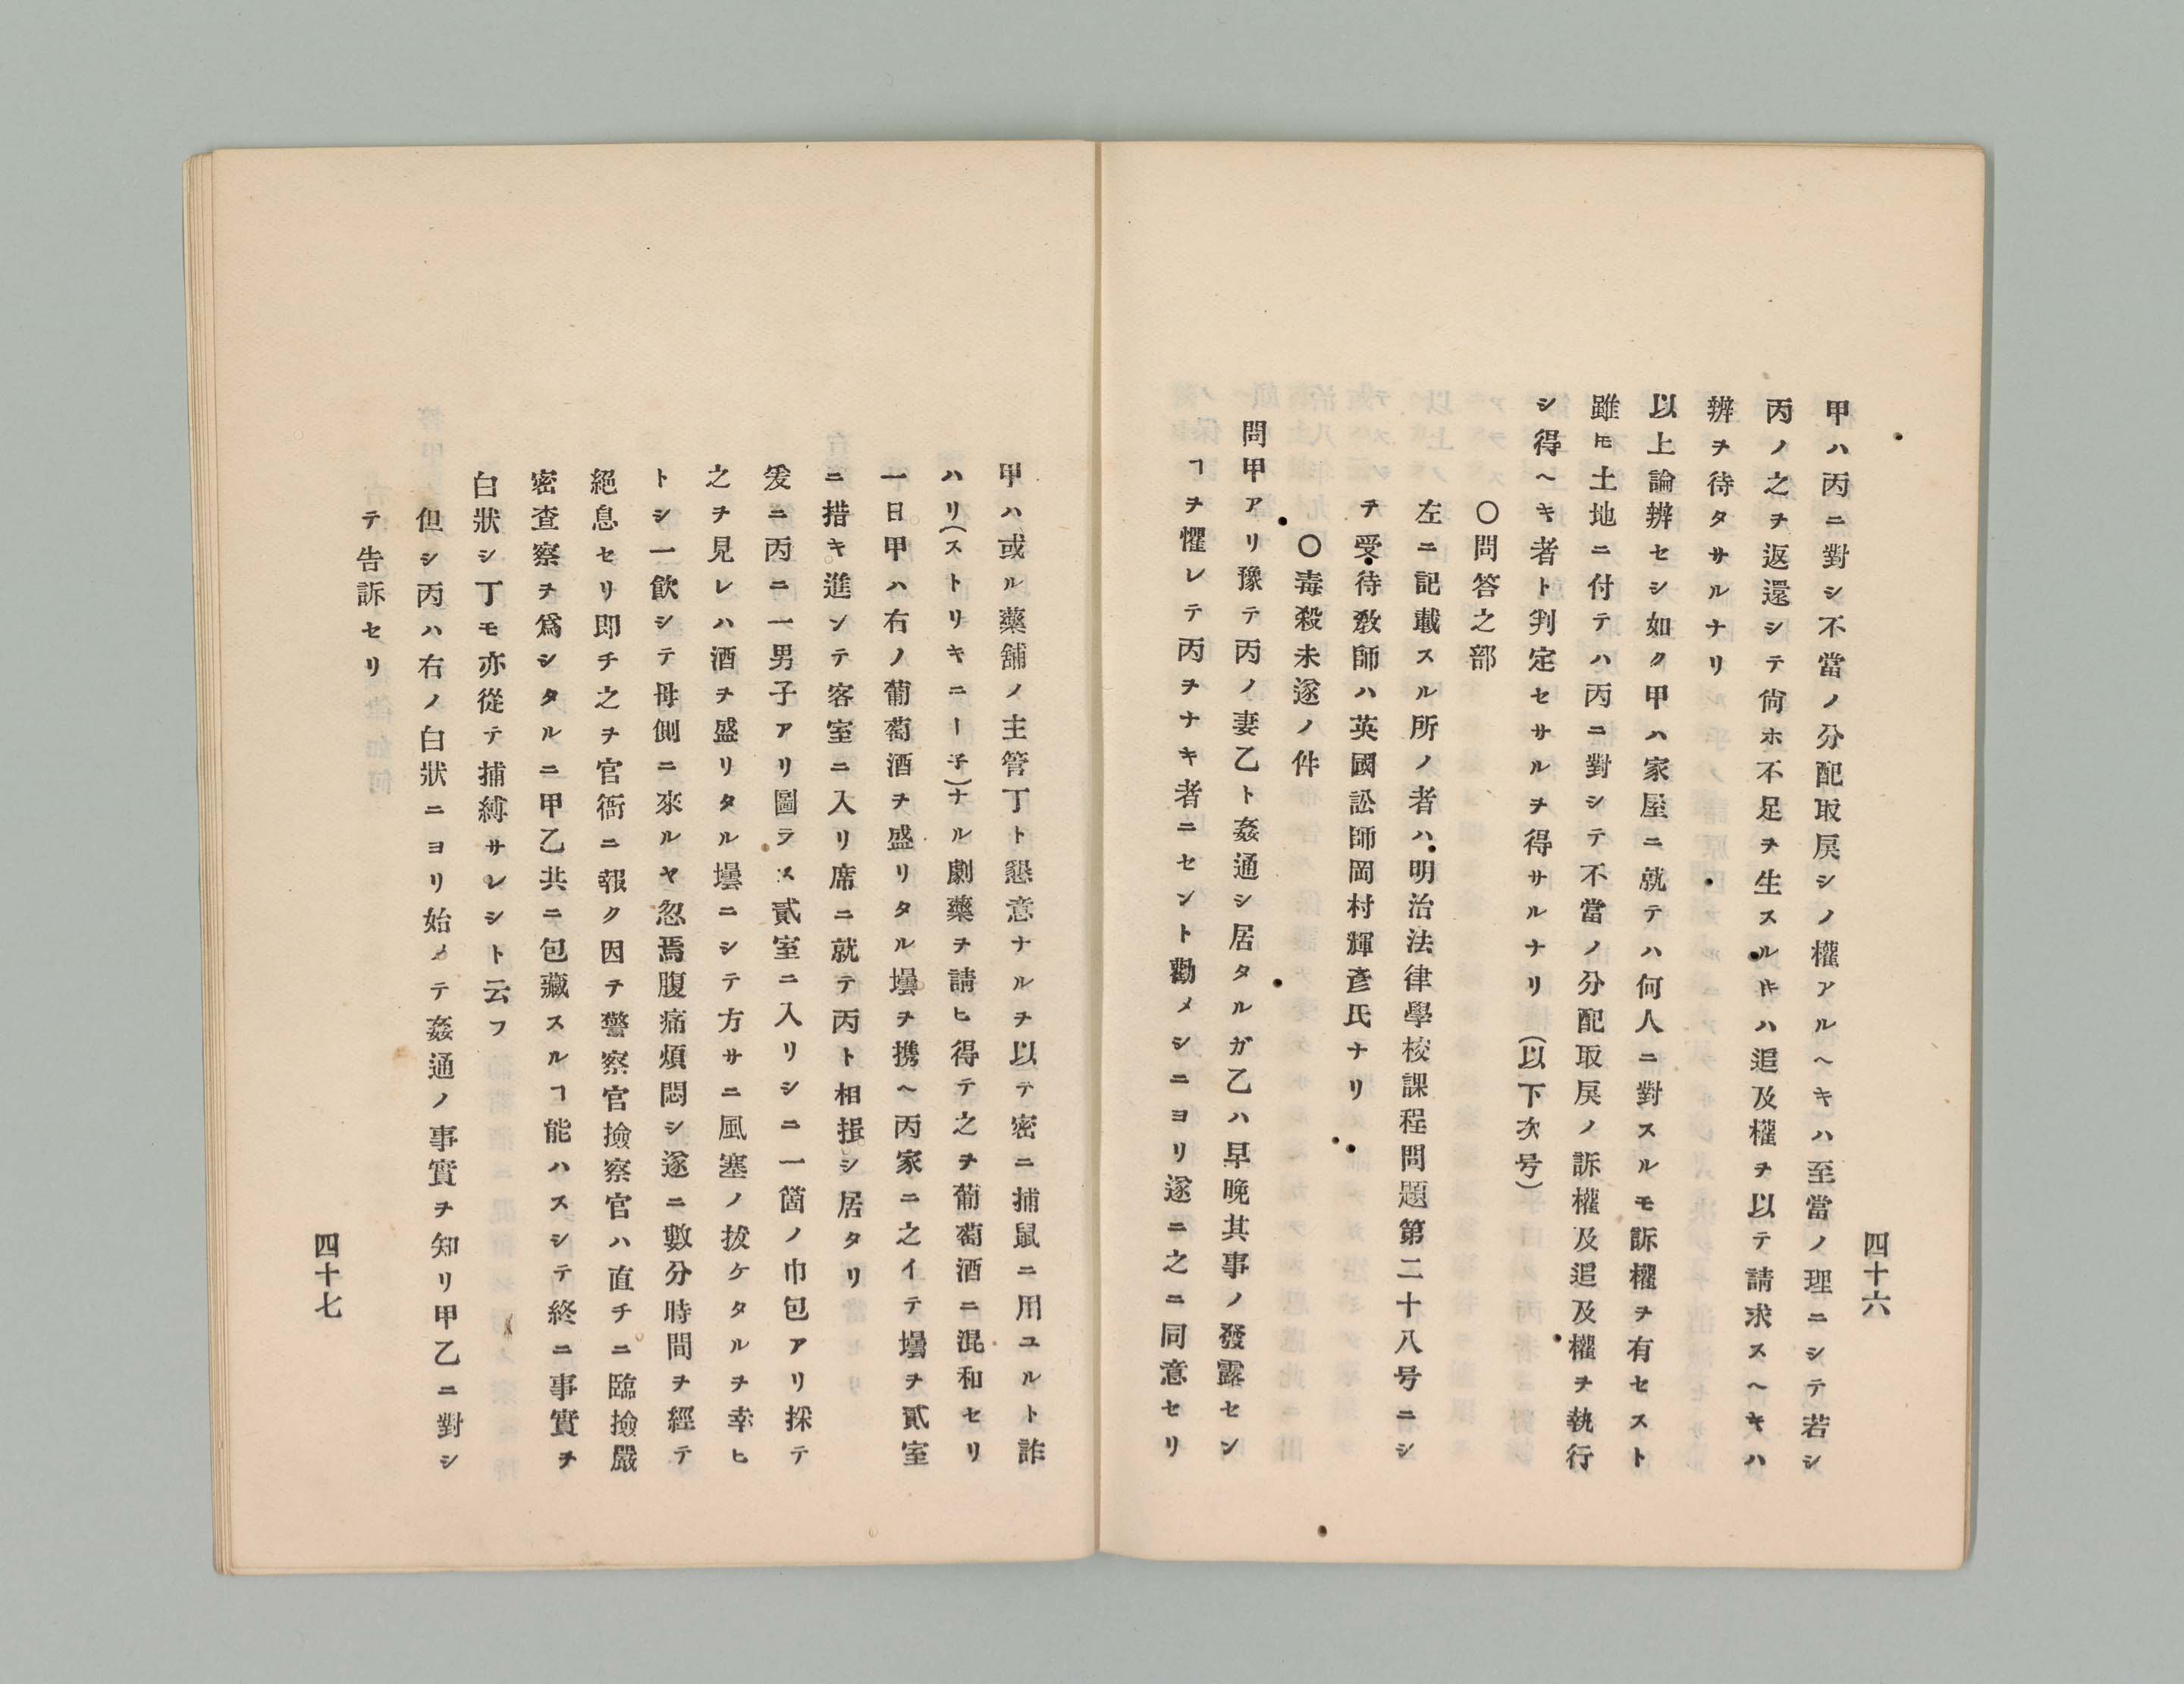 四十六
甲ハ丙ニ對シ不當ノ分配取戾シノ權アルヘキハ至當ノ理ニシテ若シ
丙ノ之ヲ返還シテ尙ホ不足ヲ生スルㇳキハ追及權ヲ以テ請求スヘキハ
辨ヲ待タサルナリ
以上論辨セシ如ク甲ハ家屋ニ就テハ何人ニ對スルモ訴權ヲ有セスト
雖𪜈土地ニ付テハ丙ニ對シテ不當ノ分配取戾ノ訴權及追及權ヲ執行
シ得ヘキ者ト判定セサルヲ得サルナリ(以下次号)
〇問答之部
左ニ記載スル所ノ者ハ明治法律學校課程問題第二十八号ニシ
チ受待敎師ハ英國訟師岡村輝彥氏ナリ
〇毒殺未遂ノ件
問甲アリ豫テ丙ノ妻乙ト姦通シ居タルガ乙ハ早晩其事ノ發露セン
ヿヲ懼レテ丙ヲナキ者ニセント勸メシニヨリ遂ニ之ニ同意セリ
甲ハ或ル藥舖ノ主管丁ト懇意ナルヲ以テ密ニ捕鼠ニ用ユルト詐
ハリ(ストリキニー子)ナル劇藥ヲ請ヒ得テ之ヲ葡萄酒ニ混和セリ
一日甲ハ右ノ葡萄酒ヲ盛リタル壜ヲ携ヘ丙家ニ之イテ壜ヲ貳室
ニ措キ進ンテ客室ニ入リ席ニ就テ丙ト相揖シ居タリ
爰ニ丙ニ一男子アリ圖ラス貳室ニ入リシニ一箇ノ巾包アリ採テ
之ヲ見レハ酒ヲ盛リタル壜ニシテ方サニ風塞ノ拔ケタルヲ幸ヒ
トシ一飮シテ母側ニ來ルヤ忽焉腹痛煩悶シ遂ニ數分時間ヲ經テ
絕息セリ卽チ之ヲ官衙ニ報ク因チ警察官撿察官ハ直チニ臨撿嚴
密査察ヲ爲シタルニ甲乙共ニ包藏スルヿ能ハスシテ終ニ事實ヲ
白狀シ丁モ亦從テ捕縛サレシト云フ
但シ丙ハ右ノ白狀ニヨリ始メテ姦通ノ事實ヲ知リ甲乙ニ對シ
テ告訴セリ
四十七